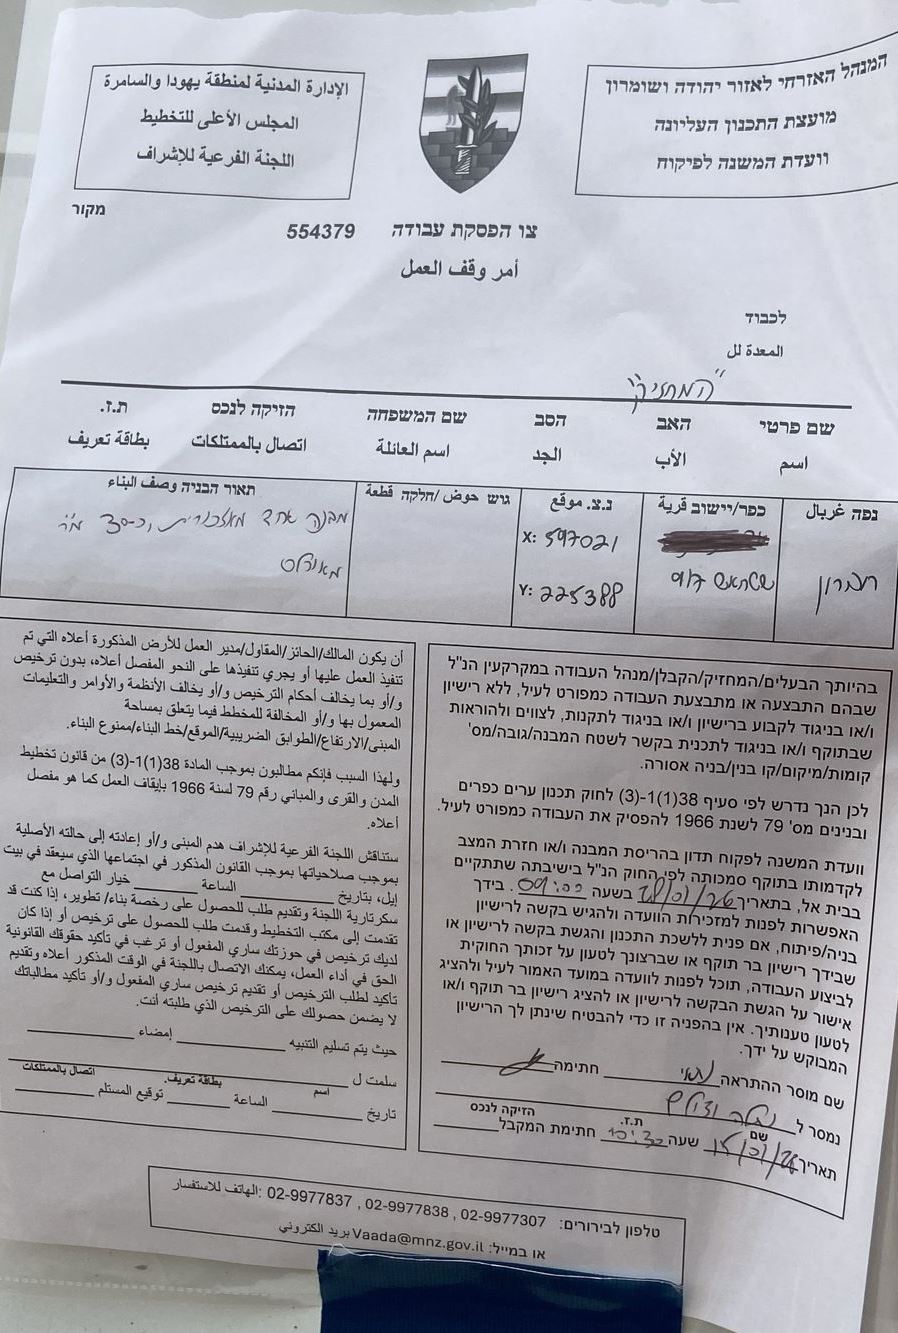 המנהל האזרחי לאזור יהודה ושומרון
מועצת התכנון העליונה
וועדת המשנה לפיקוח
الإدارة المدنية لمنطقة يهودا والسامرة
المجلس الأعلى للتخطيط
اللجنة الفرعية للإشراف
מקור
צו הפסקת עבודה 554379
أمر وقف العمل
לכבוד
المعدة لل
"המחזיק"
שם פרטי האב הסב שם המשפחה הזיקה לנכס ת.ז.
اسم الأب الجد اسم العائلة اتصال بالممتلكات بطاقة تعريف
נפה غربال
חברון
כפר/יישוב قرية
נ.צ. موقع
X: 597021
Y: 225388
גוש حوض /חלקה قطعة
תאור הבניה وصف البناء
מבנה אחד
מ"ר
בהיותך הבעלים/המחזיק/הקבלן/מנהל העבודה במקרקעין הנ"ל
שבהם התבצעה או מתבצעת העבודה כמפורט לעיל, ללא רישיון
ו/או בניגוד לקבוע ברישיון ו/או בניגוד לתקנות, לצווים ולהוראות
שבתוקף ו/או בניגוד לתכנית בקשר לשטח המבנה/גובה/מס'
קומות/מיקום/קו בנין/בניה אסורה.
לכן הנך נדרש לפי סעיף 38(1)-1(3) לחוק תכנון ערים כפרים
ובנינים מס' 79 לשנת 1966 להפסיק את העבודה כמפורט לעיל.
וועדת המשנה לפקוח תדון בהריסת המבנה ו/או חזרת המצב
לקדמותו בתוקף סמכותה לפי החוק הנ"ל בישיבתה שתתקיים
בבית אל, בתאריך 28/01/26 בשעה 09:00. בידך
האפשרות לפנות למזכירות הוועדה ולהגיש בקשה לרישיון
בניה/פיתוח, אם פנית ללשכת התכנון והגשת בקשה לרישיון או
שבידך רישיון בר תוקף או שברצונך לטעון על זכותך החוקית
לביצוע העבודה, תוכל לפנות לוועדה במועד האמור לעיל ולהציג
אישור על הגשת הבקשה לרישיון או להציג רישיון בר תוקף ו/או
לטעון טענותיך. אין בהפניה זו כדי להבטיח שינתן לך הרישיון
המבוקש על ידך.
שם מוסר ההתראה חתימה
נמסר ל
שם ת.ז. הזיקה לנכס
תאריך 15/01/26 שעה 10:30 חתימת המקבל
أن يكون المالك/الحائز/المقاول/مدير العمل للأرض المذكورة أعلاه التي تم
تنفيذ العمل عليها أو يجري تنفيذها على النحو المفصل أعلاه، بدون ترخيص
و/أو بما يخالف أحكام الترخيص و/أو يخالف الأنظمة والأوامر والتعليمات
المعمول بها و/أو المخالفة للمخطط فيما يتعلق بمساحة
المبنى/الارتفاع/الطوابق الضريبية/الموقع/خط البناء/ممنوع البناء.
ولهذا السبب فإنكم مطالبون بموجب المادة 38(1)-1(3) من قانون تخطيط
المدن والقرى والمباني رقم 79 لسنة 1966 بإيقاف العمل كما هو مفصل
أعلاه.
ستناقش اللجنة الفرعية للإشراف هدم المبنى و/أو إعادته إلى حالته الأصلية
بموجب صلاحياتها بموجب القانون المذكور في اجتماعها الذي سيعقد في بيت
إيل، بتاريخ الساعة خيار التواصل مع
سكرتارية اللجنة وتقديم طلب للحصول على رخصة بناء/ تطوير، إذا كنت قد
تقدمت إلى مكتب التخطيط وقدمت طلب للحصول على ترخيص أو إذا كان
لديك ترخيص في حوزتك ساري المفعول أو ترغب في تأكيد حقوقك القانونية
الحق في أداء العمل، يمكنك الاتصال باللجنة في الوقت المذكور أعلاه وتقديم
تأكيد لطلب الترخيص أو تقديم ترخيص ساري المفعول و/أو تأكيد مطالباتك
لا يضمن حصولك على الترخيص الذي طلبته أنت.
حيث يتم تسليم التنبيه إمضاء
سلمت ل
اسم بطاقة تعريف. اتصال بالممتلكات
تاريخ الساعة توقيع المستلم
טלפון לבירורים: 02-9977307 , 02-9977838 , 02-9977837 :الهاتف للاستفسار
או במייל: Vaada@mnz.gov.il بريد الكتروني